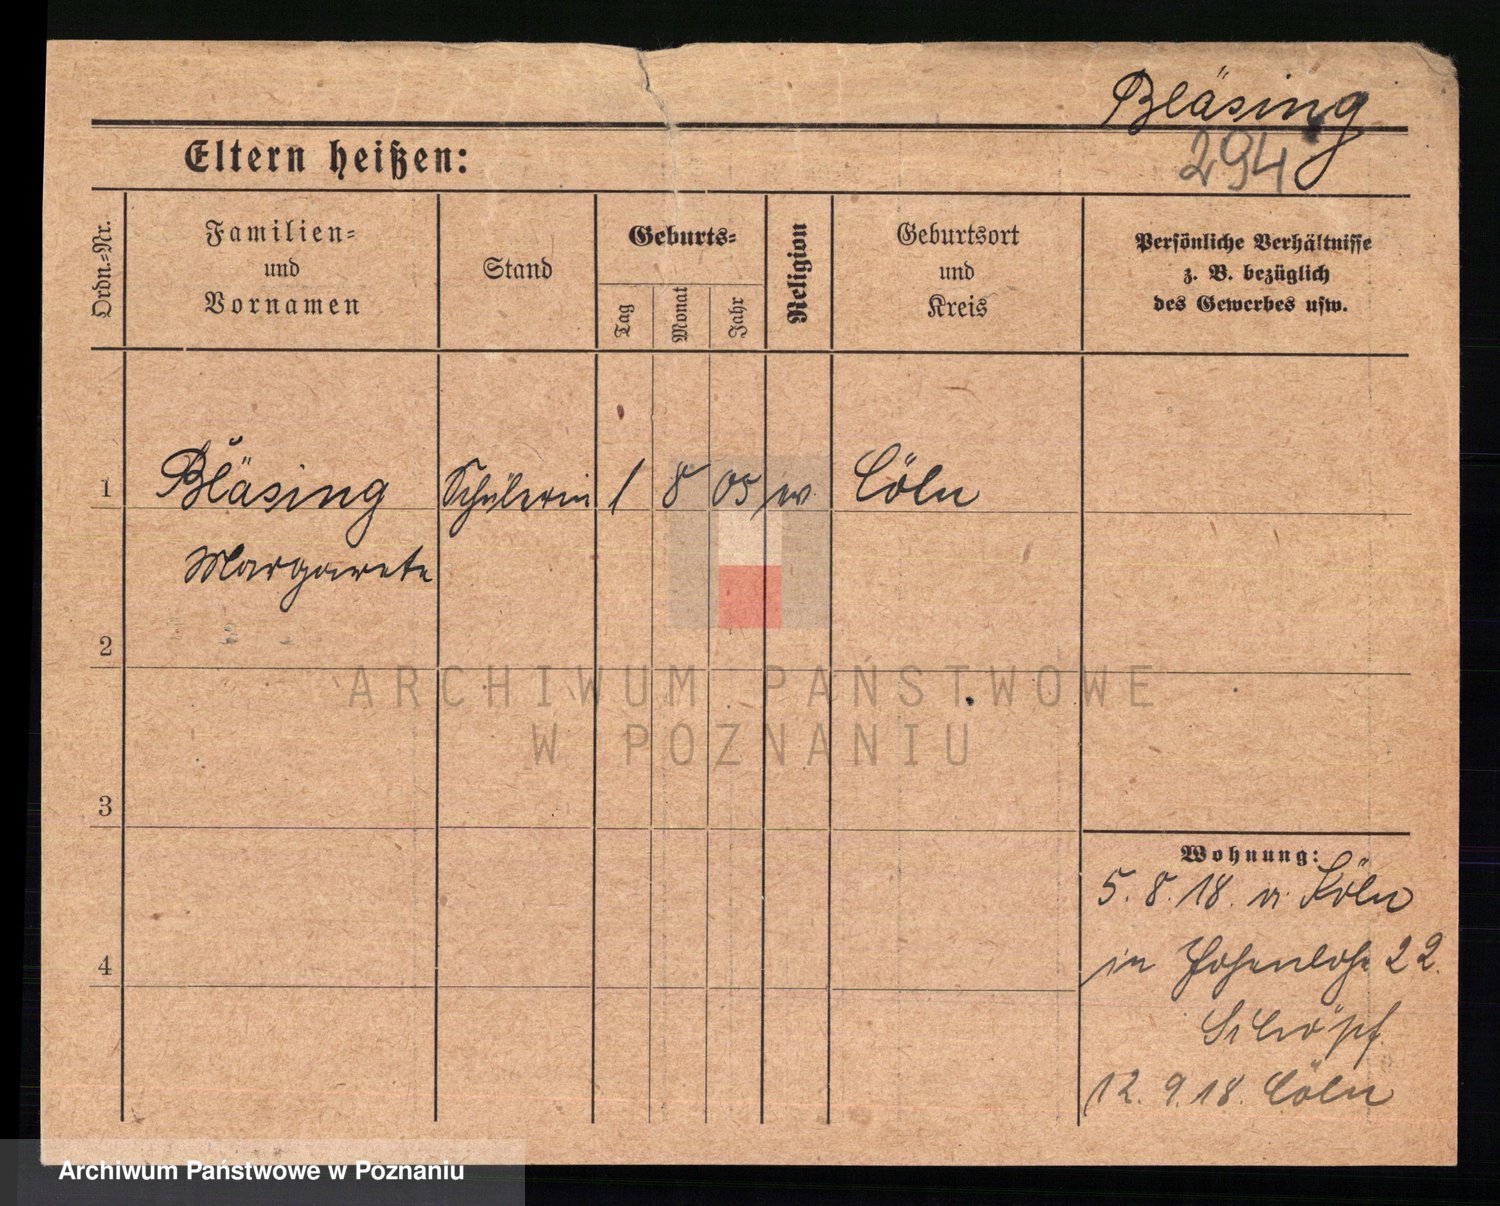 Bläsing
294
Eltern heißen:
Ordn.-Nr.
Familien- und Vornamen
Stand
Geburts-
Tag
Monat
Jahr
Religion
Geburtsort und Kreis
Persönliche Verhältnisse
z. B. bezüglich
des Gewerbes usw.
1 Bläsing Schülerin 1 8 05 ev. Cöln
Margarete
2
3
4
Wohnung:
5. 8. 18. v. Köln
in Hohenlohe 22.
12. 9. 18. Cöln
ARCHIWUM PAŃSTWOWE
W POZNANIU
Archiwum Państwowe w Poznaniu